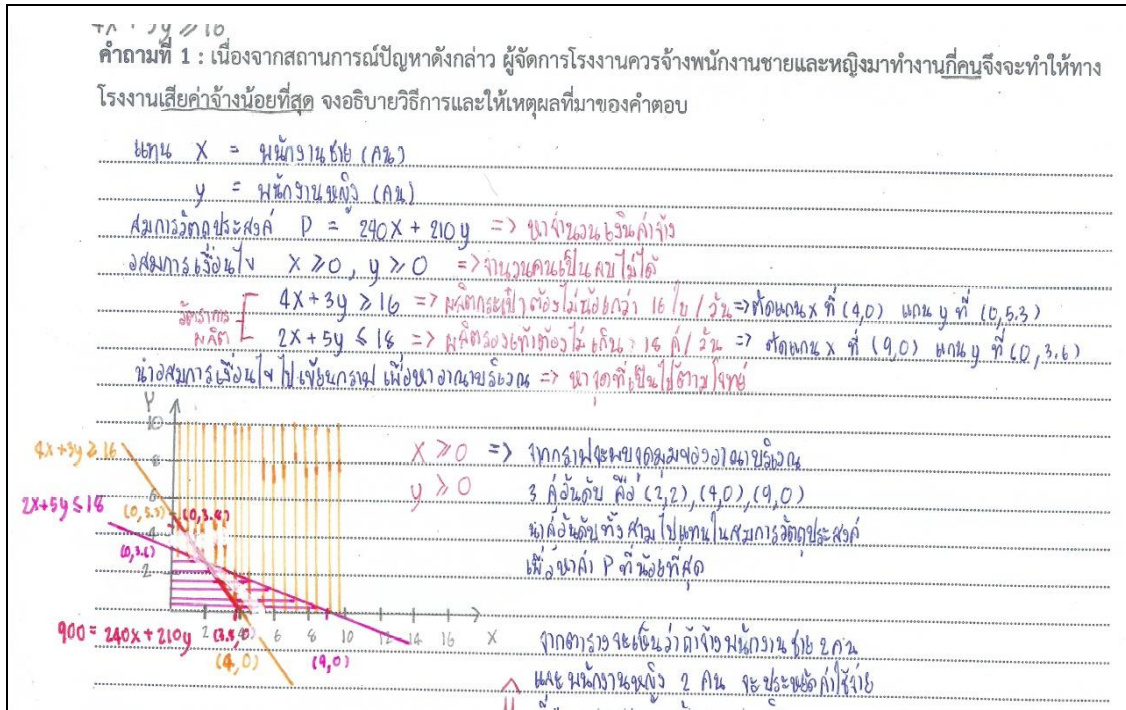 4x + 3y ≥ 16
คำถามที่ 1 : เนื่องจากสถานการณ์ปัญหาดังกล่าว ผู้จัดการโรงงานควรจ้างพนักงานชายและหญิงมาทำงานกี่คนจึงจะทำให้ทาง
โรงงานเสียค่าจ้างน้อยที่สุด จงอธิบายวิธีการและให้เหตุผลที่มาของคำตอบ
แทน X = พนักงานชาย (คน)
y = พนักงานหญิง (คน)
สมการวัตถุประสงค์ P = 240X + 210y => หาจำนวนเงินค่าจ้าง
อสมการเงื่อนไข X ≥ 0, y ≥ 0 => จำนวนคนเป็นลบไม่ได้
อัตราการผลิต
4X + 3y ≥ 16 => ผลิตกระเป๋าต้องไม่น้อยกว่า 16 ใบ / วัน => ตัดแกน x ที่ (4,0) แกน y ที่ (0,5.3)
2X + 5y ≤ 18 => ผลิตรองเท้าต้องไม่เกิน 18 คู่ / วัน => ตัดแกน x ที่ (9,0) แกน y ที่ (0,3.6)
นำอสมการเงื่อนไขไปเขียนกราฟ เพื่อหาอาณาบริเวณ => หาจุดที่เป็นไปตามโจทย์
Y
10
8
6
4
2
4x + 3y ≥ 16
2X + 5y ≤ 18
(0,5.3)
(0,3.6)
X ≥ 0 => จากกราฟจะพบจุดมุมของอาณาบริเวณ
y ≥ 0 3 คู่อันดับ คือ (2,2), (4,0), (9,0)
นำคู่อันดับทั้งสามไปแทนในสมการวัตถุประสงค์
เพื่อหาค่า P ที่น้อยที่สุด
900 = 240x + 210y
2 6 8 10 12 14 16 X
(4,0)
(9,0)
จากตารางจะเห็นว่าถ้าจ้างพนักงานชาย 2 คน
และพนักงานหญิง 2 คน จะประหยัดค่าใช้จ่าย